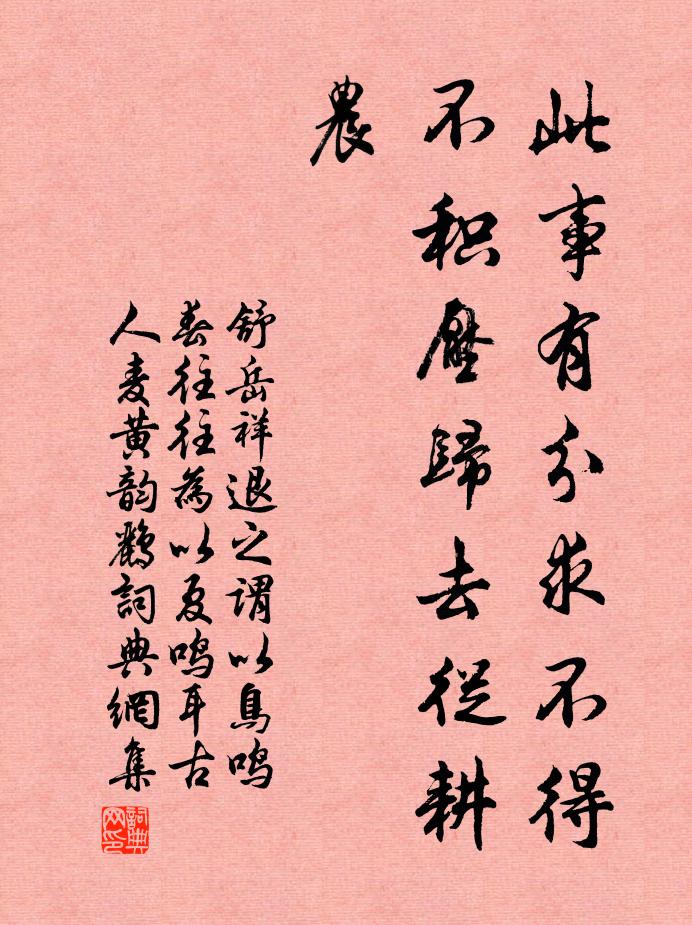 此事有分求不得
不积壓歸去從耕
農
舒岳祥退之謂以鳥鳴
春往往為以夏鳴耳古
人麦黄韵鸝詞典網集
詞典网印